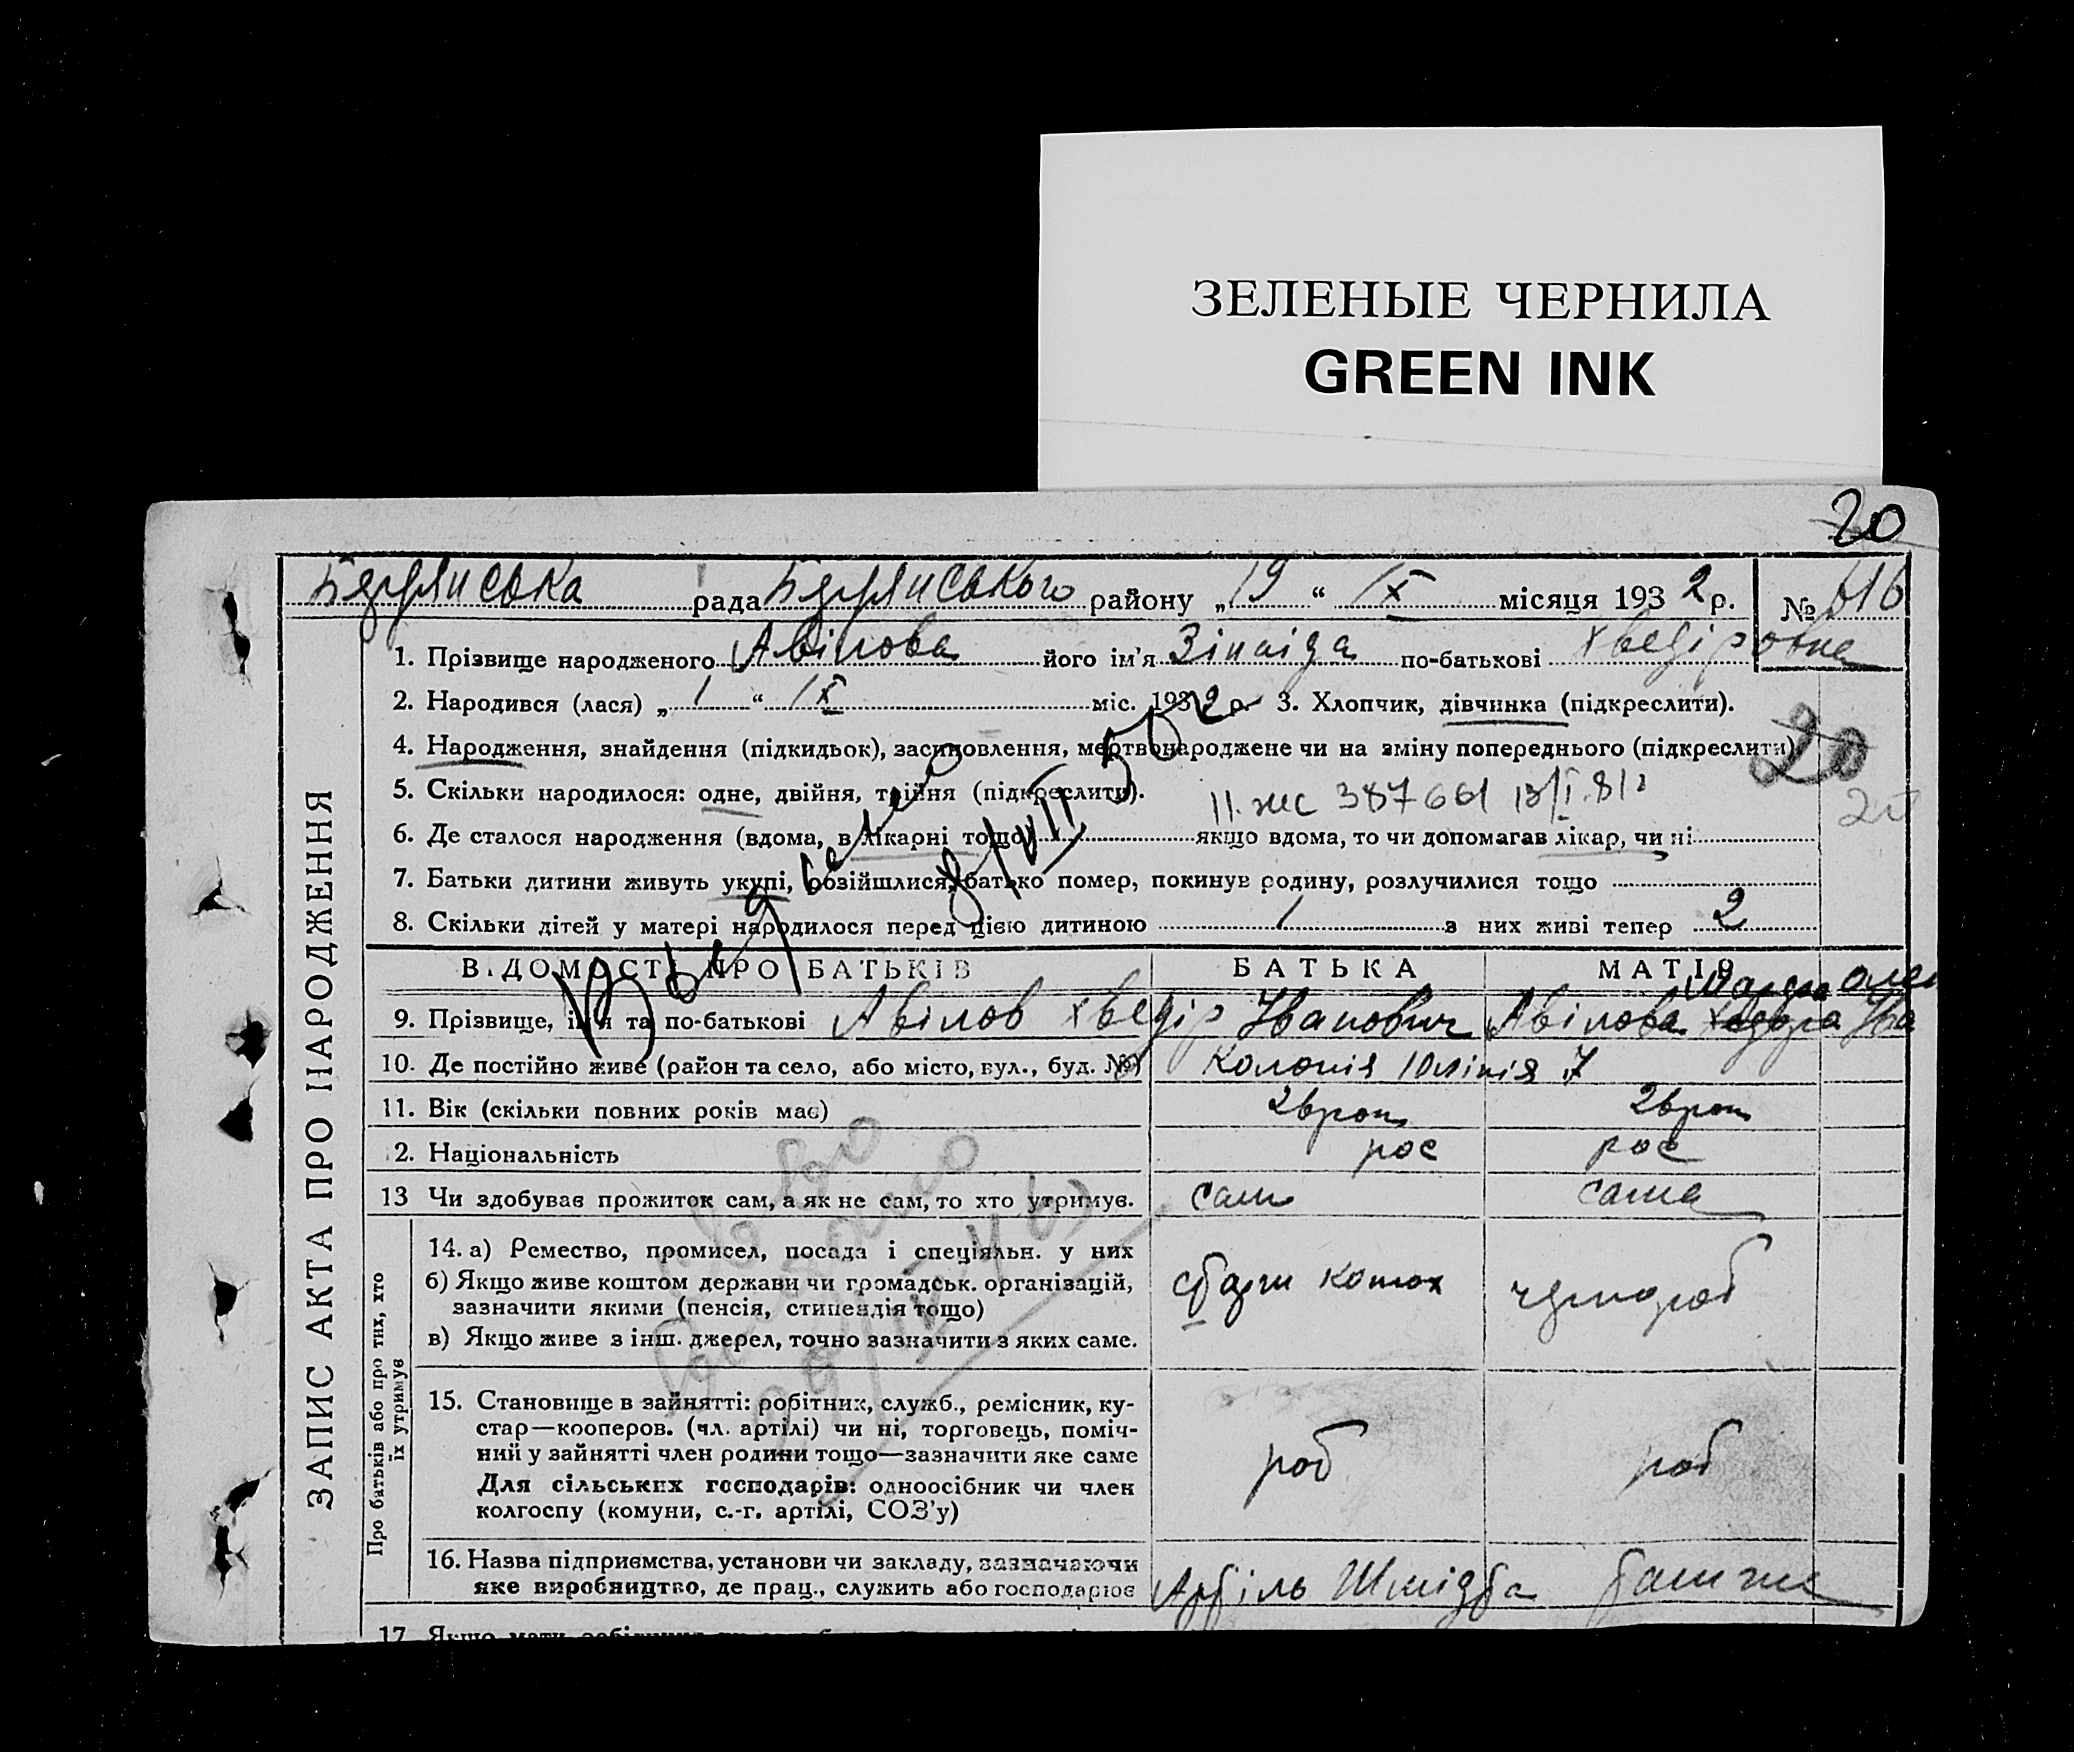 ЗЕЛЕНЫЕ ЧЕРНИЛА
GREEN INK
20
Бердянська рада Бердянського району „ 19 “ IX місяця 1932 р. № 616
1. Прізвище народженого Авілова його ім'я Зінаіда по-батькові Хведіровна
2. Народився (лася) „ 1 “ IX міс. 1932 р. 3. Хлопчик, дівчинка (підкреслити).
4. Народження, знайдення (підкидьок), засиновлення, мертвонароджене чи на зміну попереднього (підкреслити)
20
5. Скільки народилося: одне, двійня, трійня (підкреслити).
6. Де сталося народження (вдома, в лікарні тощо якщо вдома, то чи допомагав лікар, чи ні
7. Батьки дитини живуть укупі, розійшлися, батько помер, покинув родину, розлучилися тощо
8. Скільки дітей у матері народилося перед цією дитиною 1 з них живі тепер 2
ВІДОМОСТІ ПРО БАТЬКІВ БАТЬКА МАТІР
9. Прізвище, ім'я та по-батькові Авілов Хведір Іванович Авілова
10. Де постійно живе (район та село, або місто, вул., буд. №) Колонія 10 лінія 7
11. Вік (скільки повних років має)
2. Національність рос рос
13 Чи здобував прожиток сам, а як не сам, то хто утримує. сам сама
14. а) Ремество, промисел, посада і спеціяльн. у них
б) Якщо живе коштом держави чи громадськ. організацій,
зазначити якими (пенсія, стипендія тощо)
в) Якщо живе з інш. джерел, точно зазначити з яких саме.
чорнороб
15. Становище в зайнятті: робітник, служб., ремісник, ку-
стар—кооперов. (чл. артілі) чи ні, торговець, поміч-
ний у зайнятті член родини тощо—зазначити яке саме
Для сільських господарів: одноосібник чи член
колгоспу (комуни, с.-г. артілі, СОЗ'у)
роб роб
16. Назва підприємства, установи чи закладу, зазначаючи
яке виробництво, де прац., служить або господарює
Шмідта
17
ЗАПИС АКТА ПРО НАРОДЖЕННЯ
Про батьків або про тих, хто
їх утримує
Выдано
8/VII 50